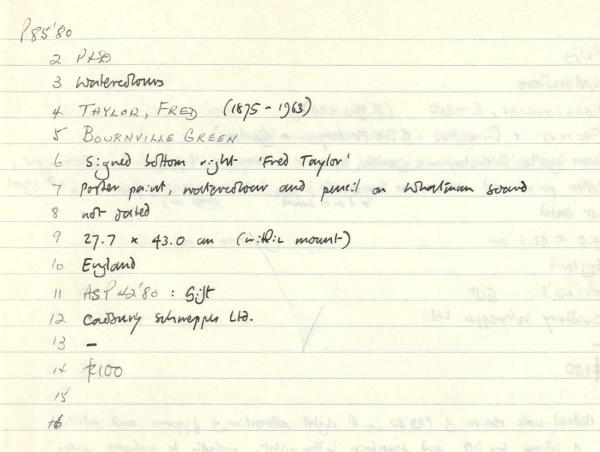 P85'80
2 P+D
3 Watercolours
4 TAYLOR, FRED (1875-1963)
5 BOURNVILLE GREEN
6 Signed bottom right 'Fred Taylor'
7 Poster paint, watercolour and pencil on Whatman board
8 not dated
9 27.7 x 43.0 cm (within mount)
10 England
11 ASP42'80 : Gift
12 Cadbury Schweppes Ltd.
13 -
14 £100
15
16